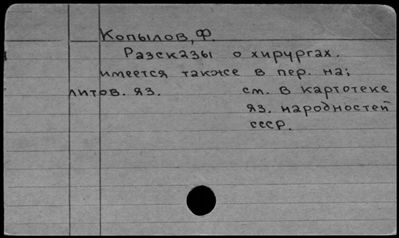 Копылов, Ф.
Рассказы о хирургах.
имеется также в пер. на:
литов. яз. см. в картотеке
яз. народностей
ссср.